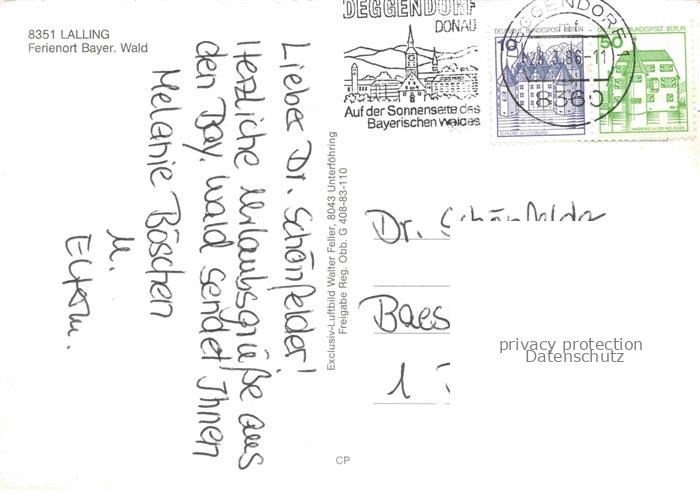 8351 LALLING
Ferienort Bayer. Wald
Lieber Dr. Schönfelder!
Herzliche Urlaubsgrüße aus
den Bay. Wald sendet Ihnen
Melanie Böschen
u.
Eltern.
Exclusiv-Luftbild Walter Feller, 8043 Unterföhring
Freigabe Reg. Obb. G 408-83-110
CP
DEGGENDORF
DONAU
Auf der Sonnenseite des
Bayerischen Waldes
DEGGENDORF
mf
-11
8360
10
DEUTSCHE BUNDESPOST BERLIN
SCHLOSS GLÜCKSBURG
50
BUNDESPOST BERLIN
WASSERSCHLOSS INZLINGEN
Dr. Schönfelder
Baes
1
privacy protection
Datenschutz